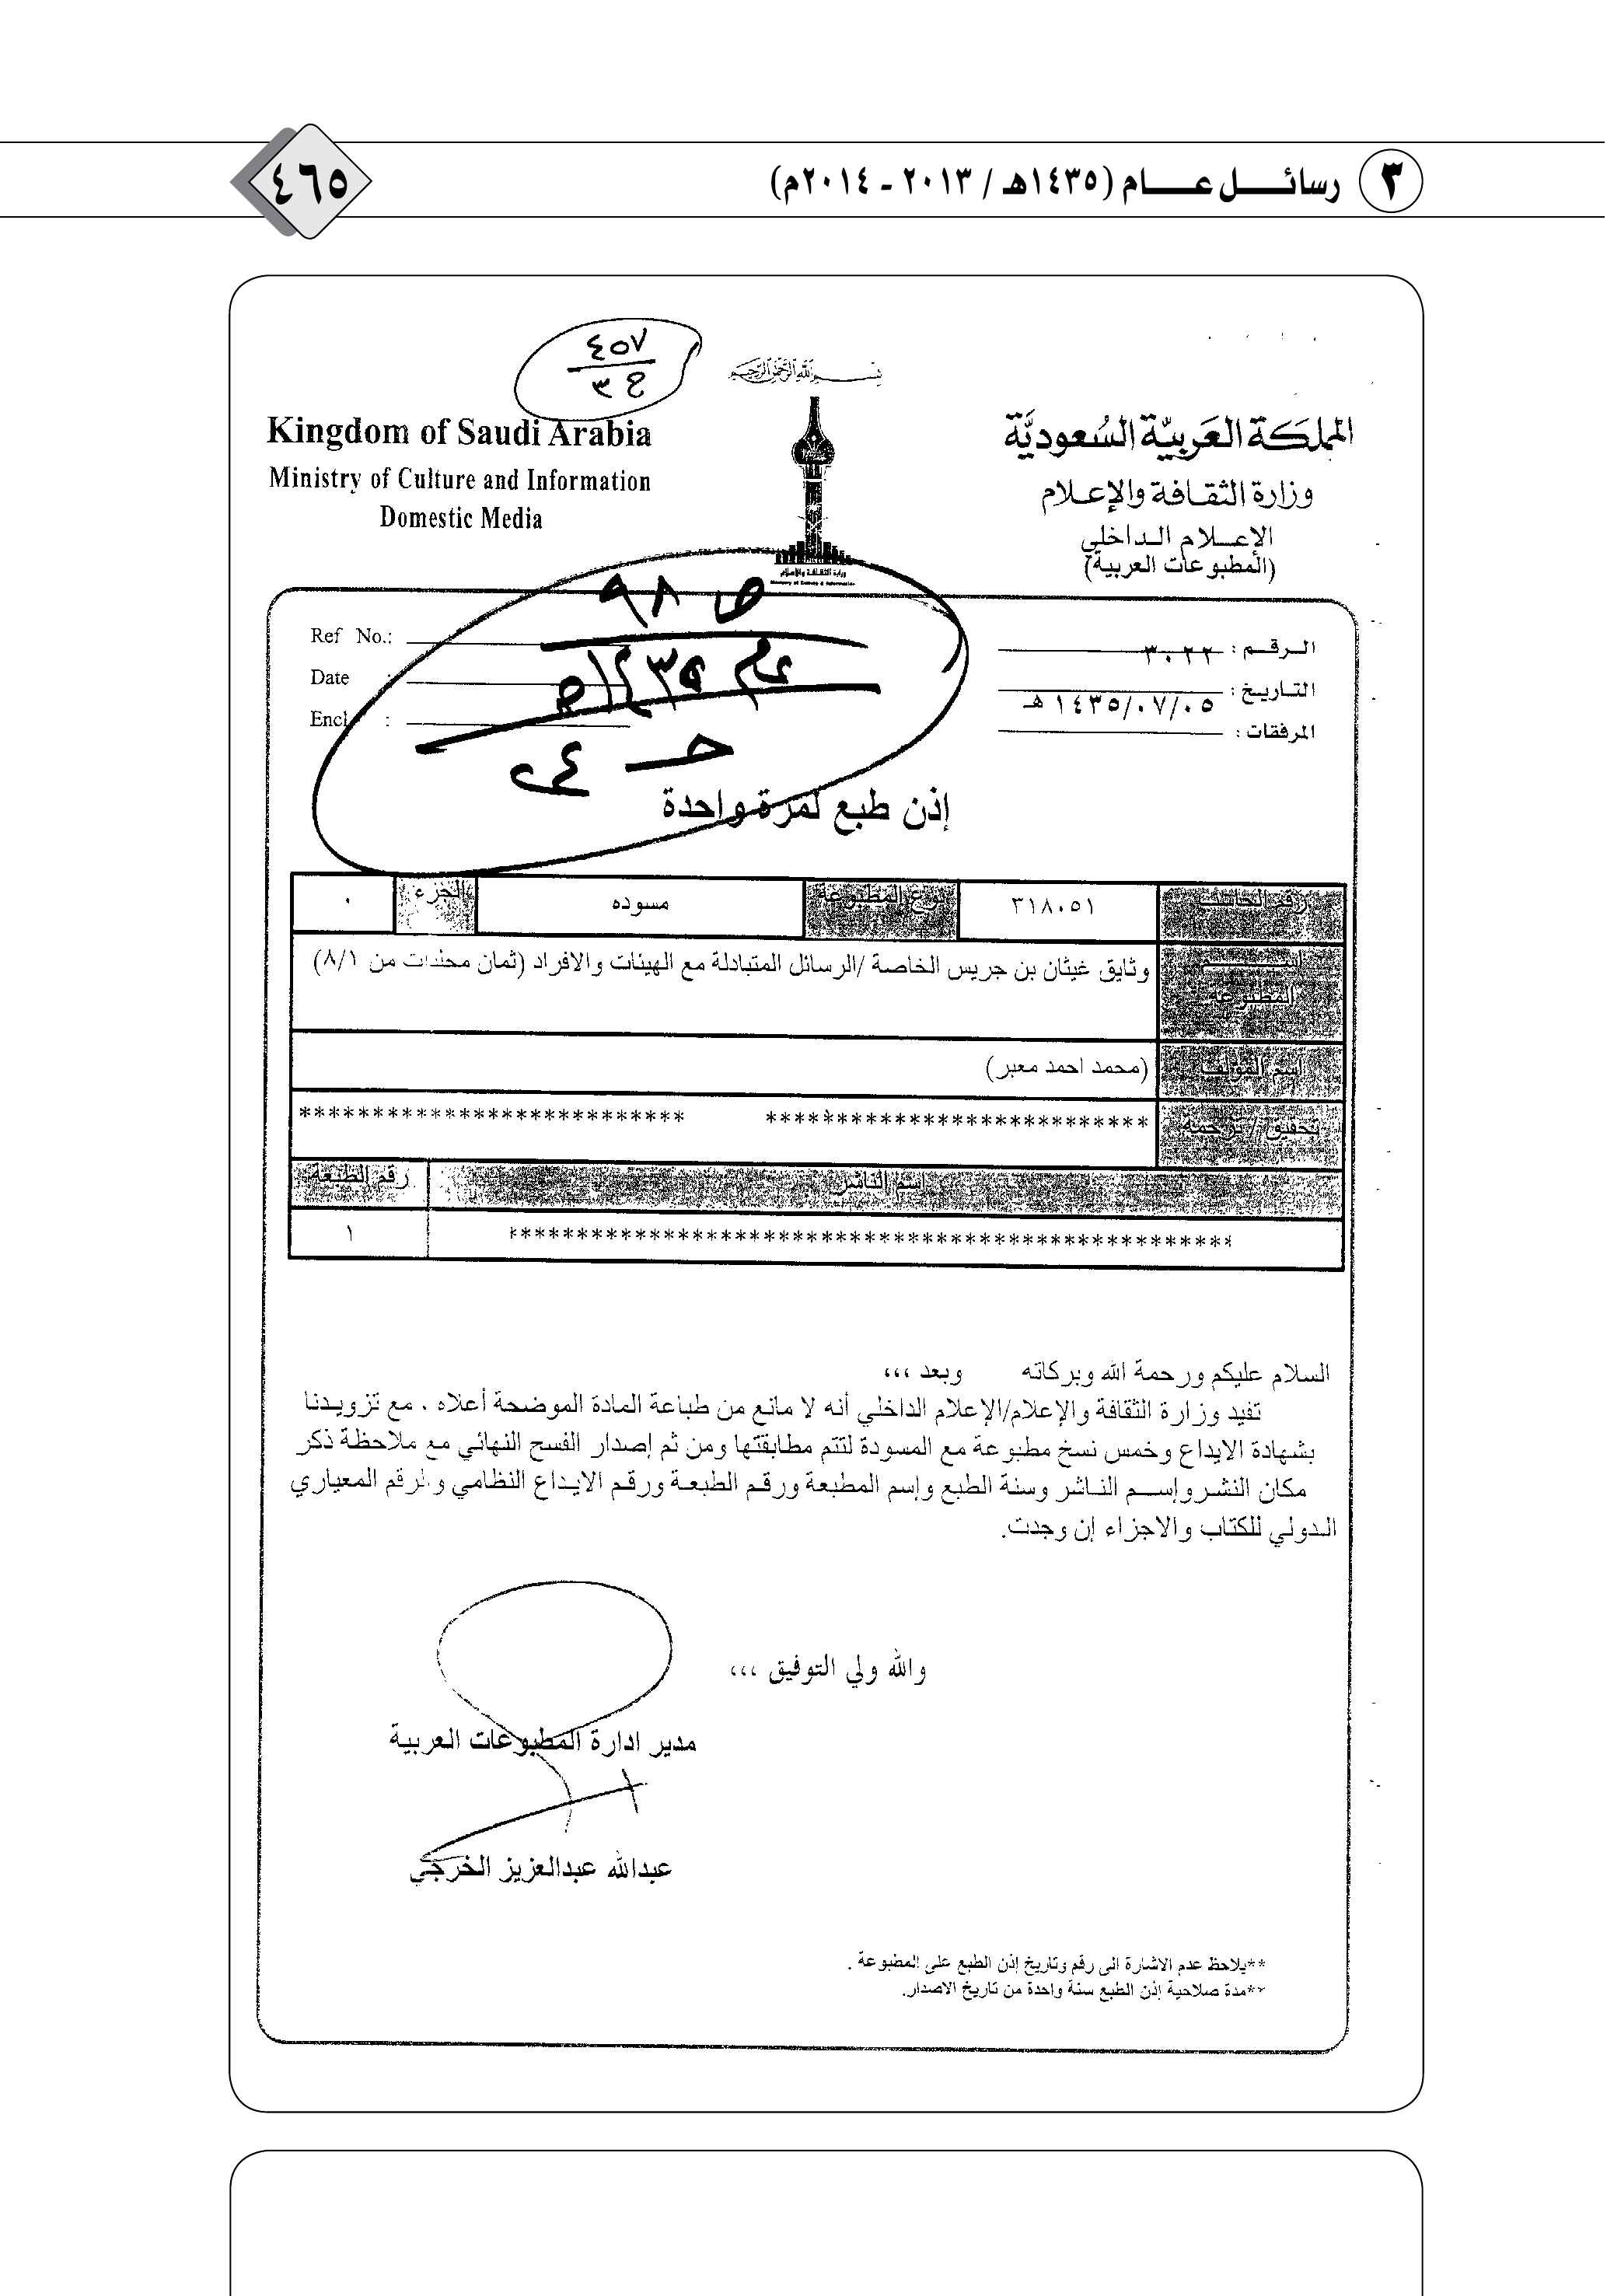 ٣ رسائل عام (١٤٣٥هـ / ٢٠١٣ - ٢٠١٤م)
٤٦٥
٤٥٧
ح ٣
بسم الله الرحمن الرحيم
المملكة العربية السعودية
وزارة الثقافة والإعلام
الإعلام الداخلي
(المطبوعات العربية)
Kingdom of Saudi Arabia
Ministry of Culture and Information
Domestic Media
وزارة الثقافة والإعلام
Ministry of Culture & Information
الرقم : ٣٠٢٢
التاريخ : ١٤٣٥/٠٧/٠٥ هـ
المرفقات :
Ref No.:
Date :
Encl :
ص ٩٨
عام ١٤٣٥هـ
إذن طبع لمرة واحدة
رقم الحاسب ٣١٨٠٥١ نوع المطبوعة مسوده الجزء ٠
اسم المطبوعة وثايق غيثان بن جريس الخاصة /الرسائل المتبادلة مع الهيئات والافراد (ثمان مجلدات من ٨/١)
اسم المؤلف (محمد احمد معبر)
تحقيق / ترجمة ************************** **************************
اسم الناشر رقم الطبعة
************************************************** ١
السلام عليكم ورحمة الله وبركاته وبعد ،،،
تفيد وزارة الثقافة والإعلام/الإعلام الداخلي أنه لا مانع من طباعة المادة الموضحة أعلاه ، مع تزويدنا
بشهادة الايداع وخمس نسخ مطبوعة مع المسودة لتتم مطابقتها ومن ثم إصدار الفسح النهائي مع ملاحظة ذكر
مكان النشر وإسم الناشر وسنة الطبع وإسم المطبعة ورقم الطبعة ورقم الايداع النظامي والرقم المعياري
الدولي للكتاب والاجزاء إن وجدت.
والله ولي التوفيق ،،،
مدير ادارة المطبوعات العربية
عبدالله عبدالعزيز الخرجي
**يلاحظ عدم الاشارة الى رقم وتاريخ إذن الطبع على المطبوعة .
**مدة صلاحية إذن الطبع سنة واحدة من تاريخ الاصدار.